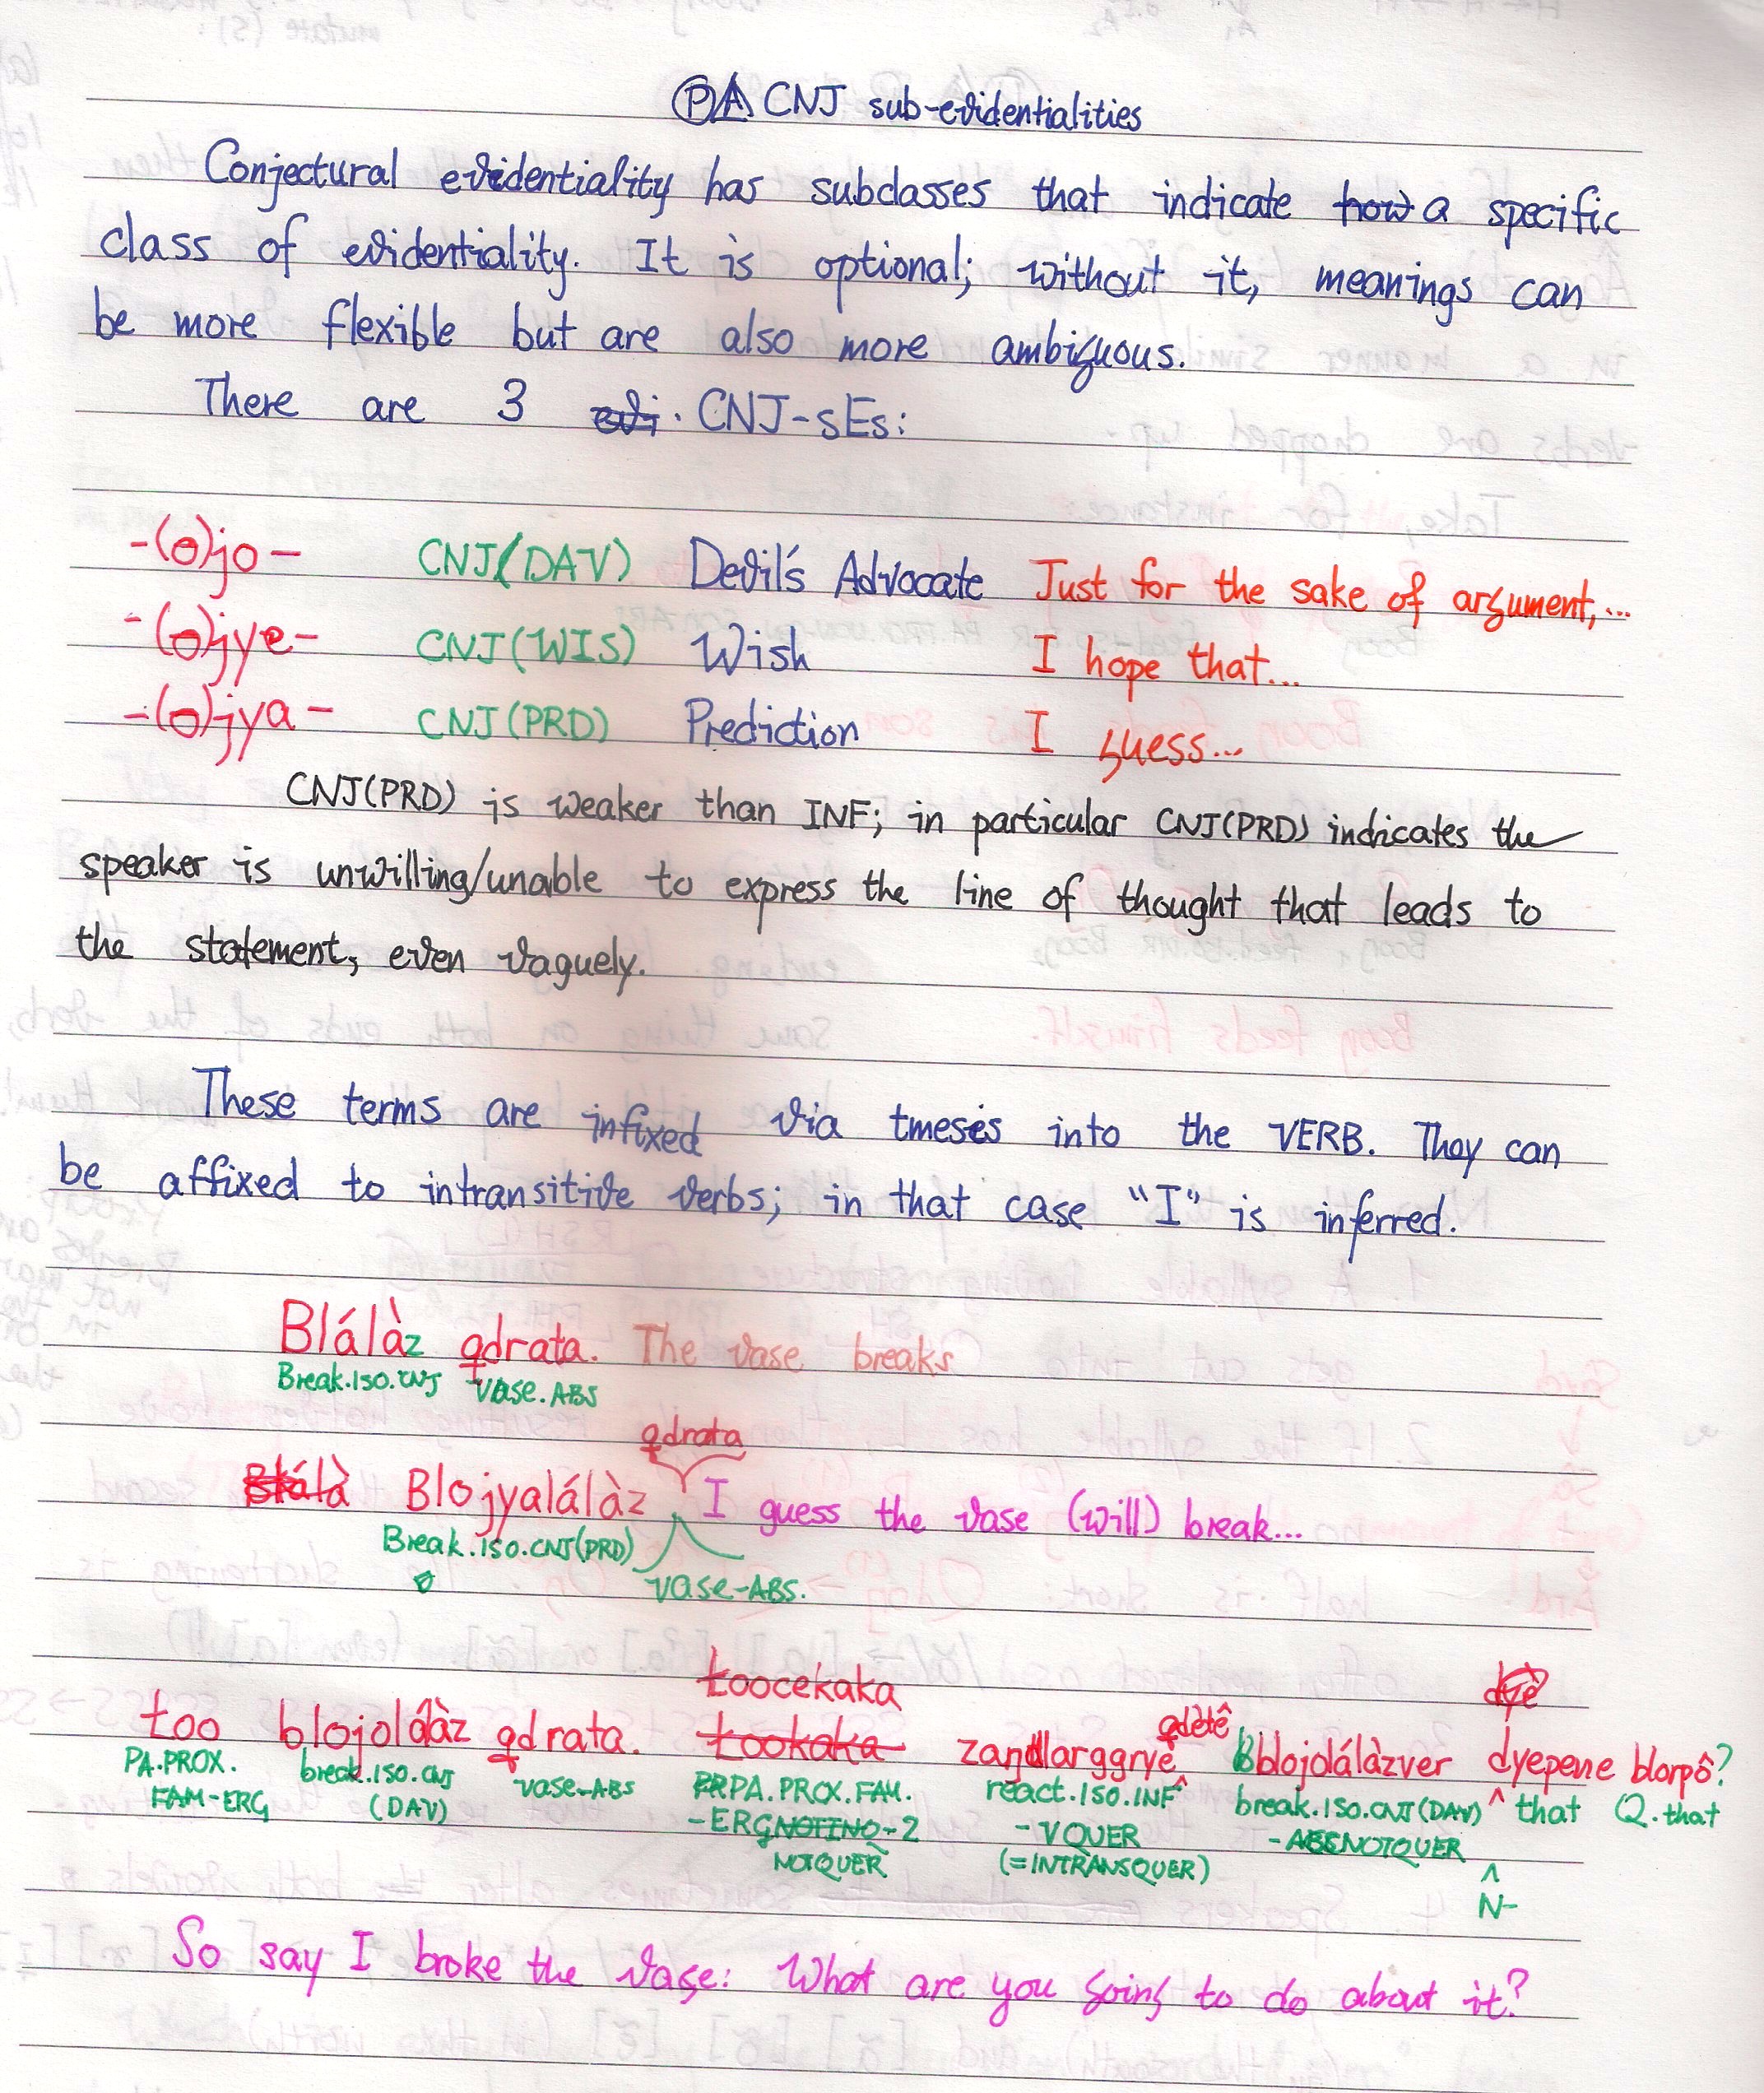 PA CNJ sub-evidentialities
Conjectural evidentiality has subclasses that indicate how a specific
class of evidentiality. It is optional; without it, meanings can
be more flexible but are also more ambiguous.
There are 3 evi. CNJ-sEs:
-(o)jo- CNJ(DAV) Devil's Advocate Just for the sake of argument,...
-(o)jye- CNJ(WIS) Wish I hope that...
-(o)jya- CNJ(PRD) Prediction I guess...
CNJ(PRD) is weaker than INF; in particular CNJ(PRD) indicates the
speaker is unwilling/unable to express the line of thought that leads to
the statement, even vaguely.
These terms are infixed via tmesis into the VERB. They can
be affixed to intransitive verbs; in that case "I" is inferred.
Blálàz qdrata. The vase breaks
Break.ISO.CNJ vase.ABS
qdrata
Blálà Blojyalálàz I guess the vase (will) break...
Break.ISO.CNJ(PRD)
vase-ABS.
Łoocekaka dyè
Łoo blojolálàz qdrata. Łookaka qdetê blojolálàzver dyepene blorpô?
PA.PROX. break.ISO.CNJ vase-ABS PA.PROX.FAM. react.ISO.INF break.ISO.CNJ(DAV) that Q.that
FAM-ERG (DAV) -VQUER
NOTQUER (=INTRANSQUER)
N-
So say I broke the vase: What are you going to do about it?